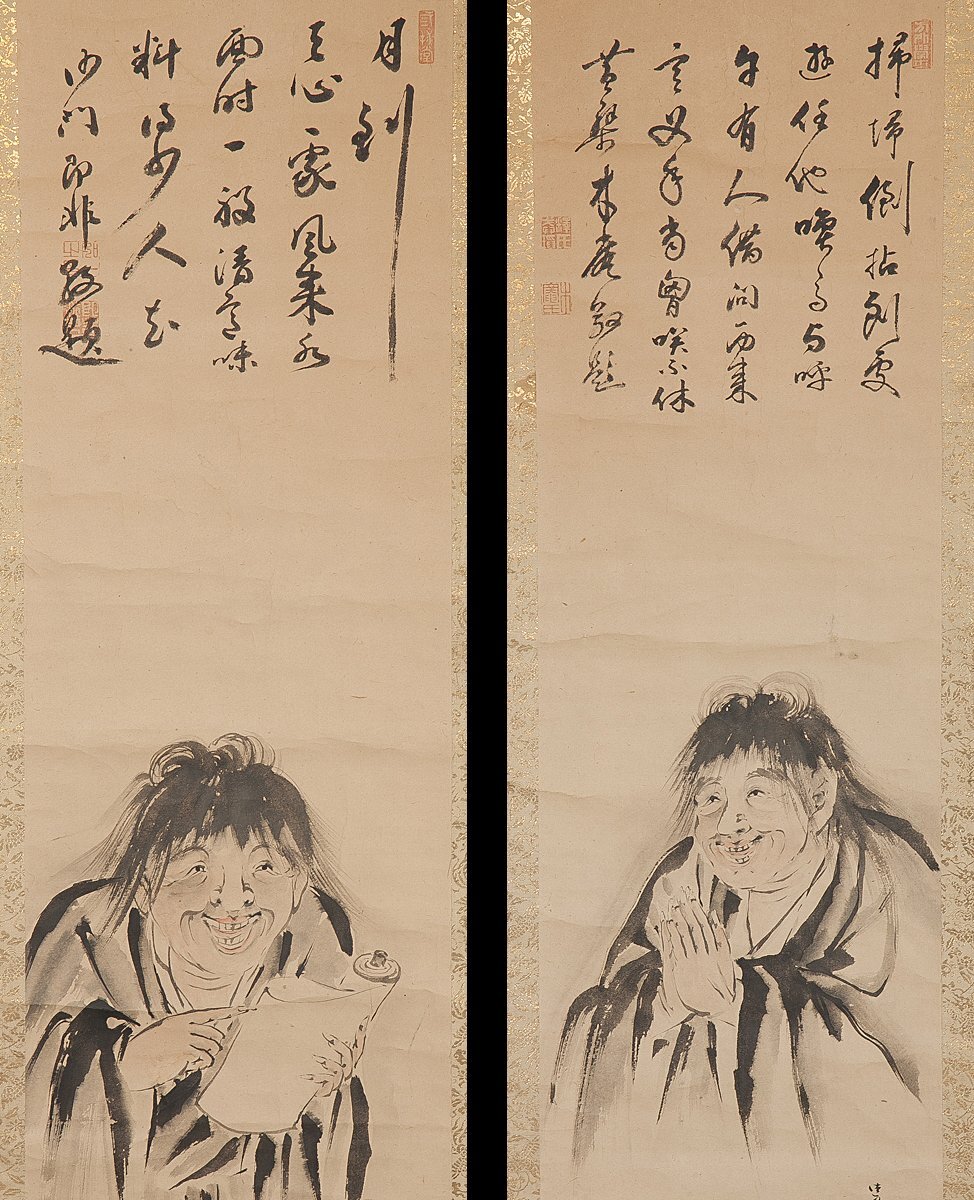 掃帚倒拈到處
遊任他喚馬与呼
牛有人借問西来
意叉手當胸咲不休
黄檗木庵敬題
月到
天心處風来水
面时一般清意味
料得少人知
沙門即非敬題